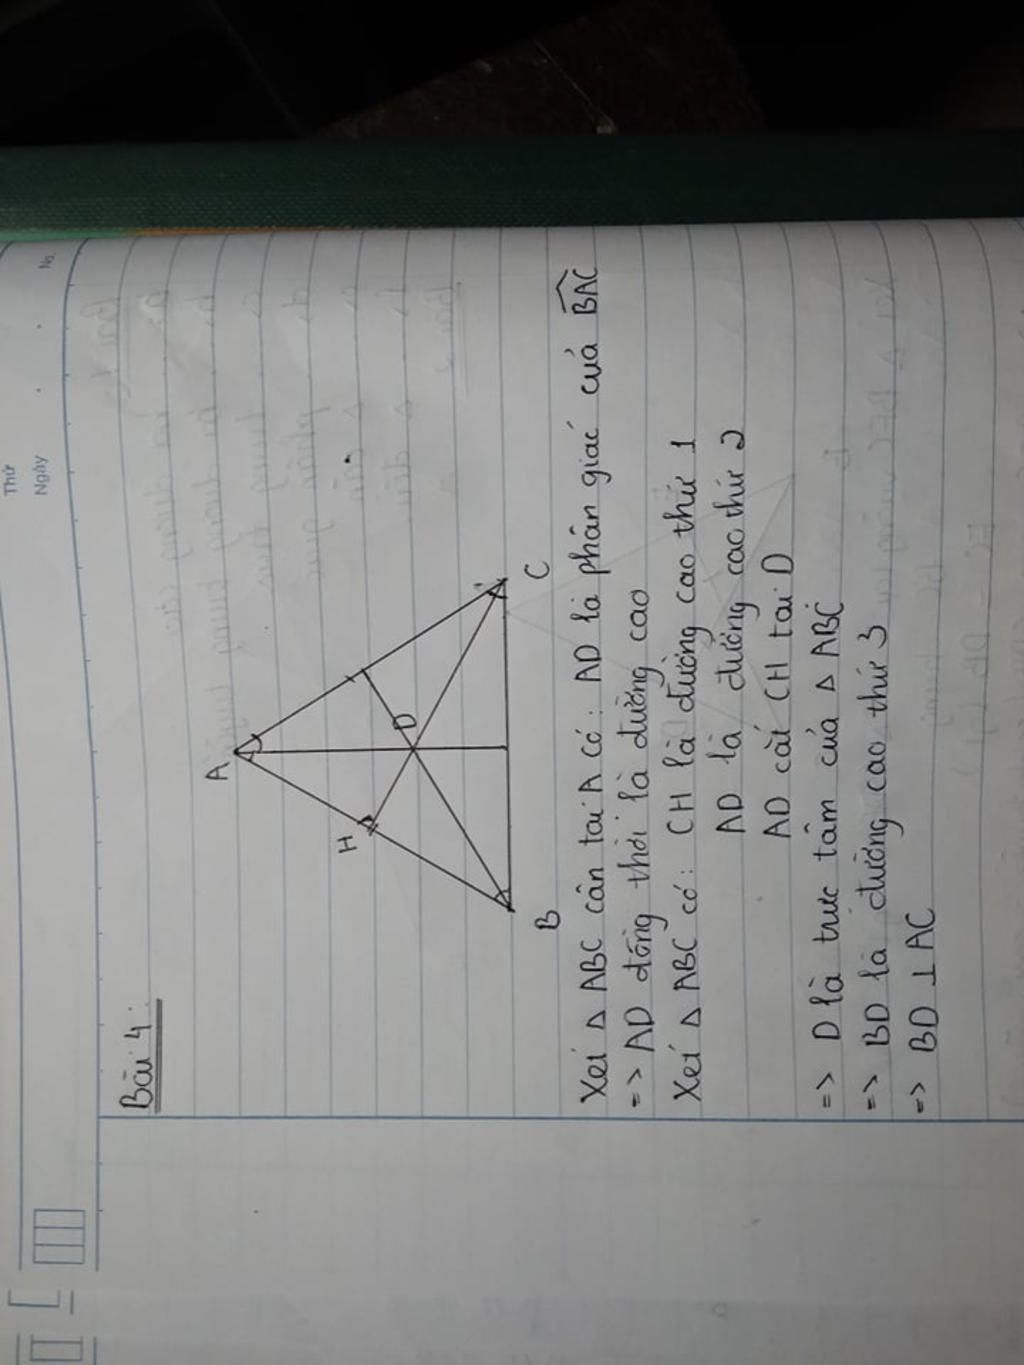 Thứ
Ngày
No.
Bài 4:
A
H
D
B
C
Xét △ ABC cân tại A có: AD là phân giác của BAC
=> AD đồng thời là đường cao
Xét △ ABC có: CH là đường cao thứ 1
AD là đường cao thứ 2
AD cắt CH tại D
=> D là trực tâm của △ ABC
=> BD là đường cao thứ 3
=> BD ⊥ AC